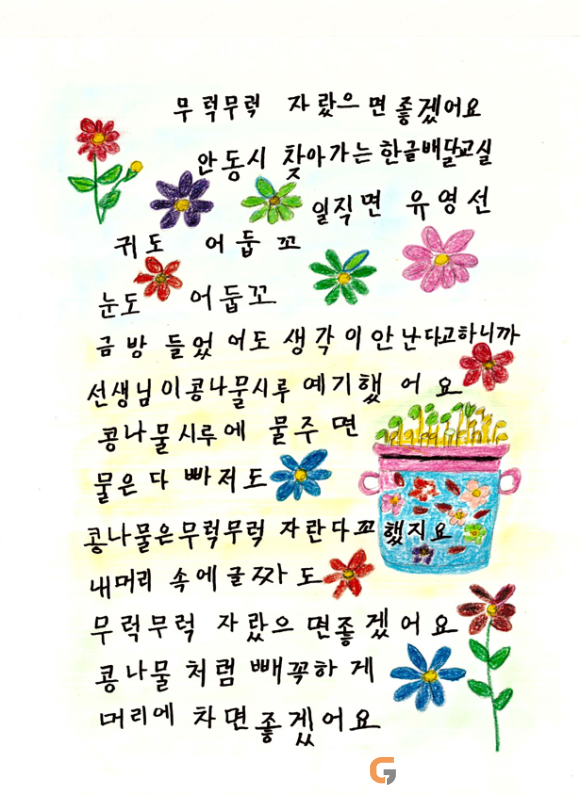 무럭무럭 자랐으면좋겠어요
안동시 찾아가는 한글배달교실
일직면 유영선
귀도 어둡꼬
눈도 어둡꼬
금방 들었어도 생각이안난다고하니까
선생님이콩나물시루 예기했어요
콩나물시루에 물주면
물은 다 빠저도
콩나물은무럭무럭 자란다꼬했지요
내머리 속에글짜도
무럭무럭 자랐으면좋겠어요
콩나물처럼 빼꼭하게
머리에 차면좋겠어요
G